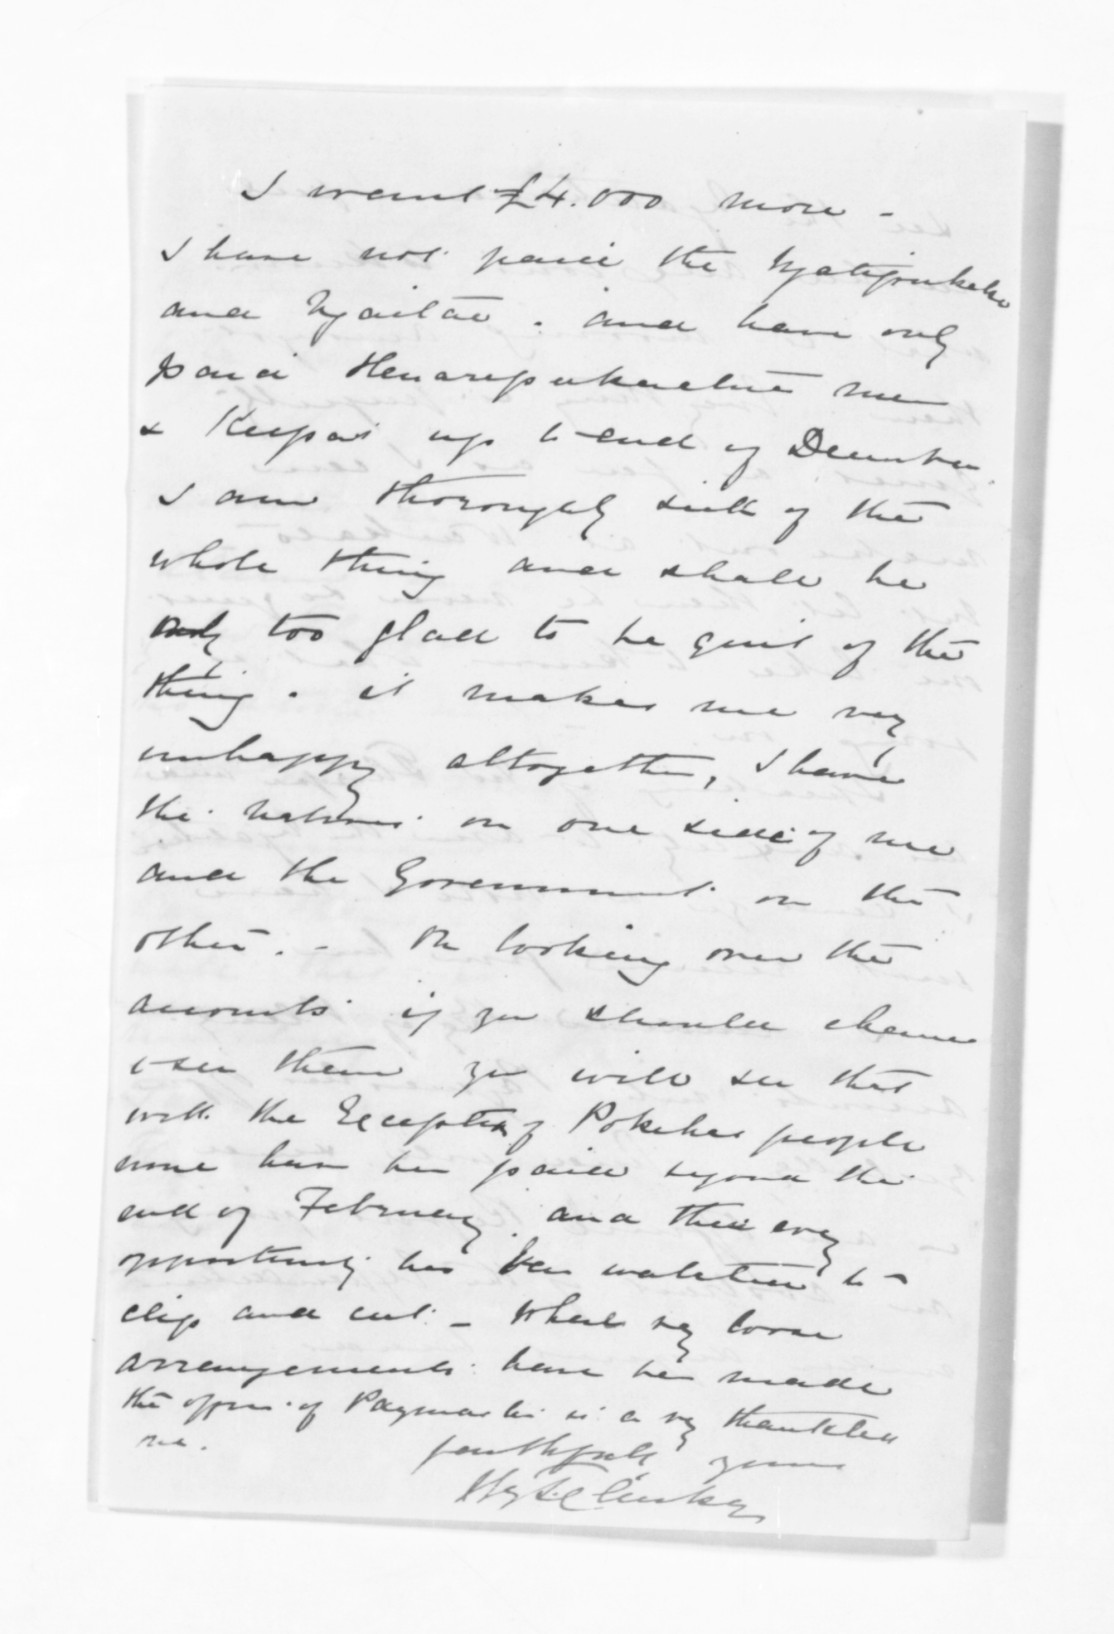 I want £4.000 more -
I have not paid the Ngatiporukeke
and Ngaitai. and have only
paid Henarepukuatua men
& Keepas up to end of December
I am thoroughly sick of the
whole thing and shall be
only too glad to be quit of the
thing. it makes me very
unhappy altogether, I have
the natives on one side of me
and the Government on the
other. - On looking over the
accounts if you should chance
to see them you will see that
with the Exception of Pokehas people
none have been paid beyond the
end of February and then every
opportunity has been watched to
clip and cut - When very loose
arrangements have been made
the office of Paymaster is a very thankless
one. faithfully yours
Hy T Clarke